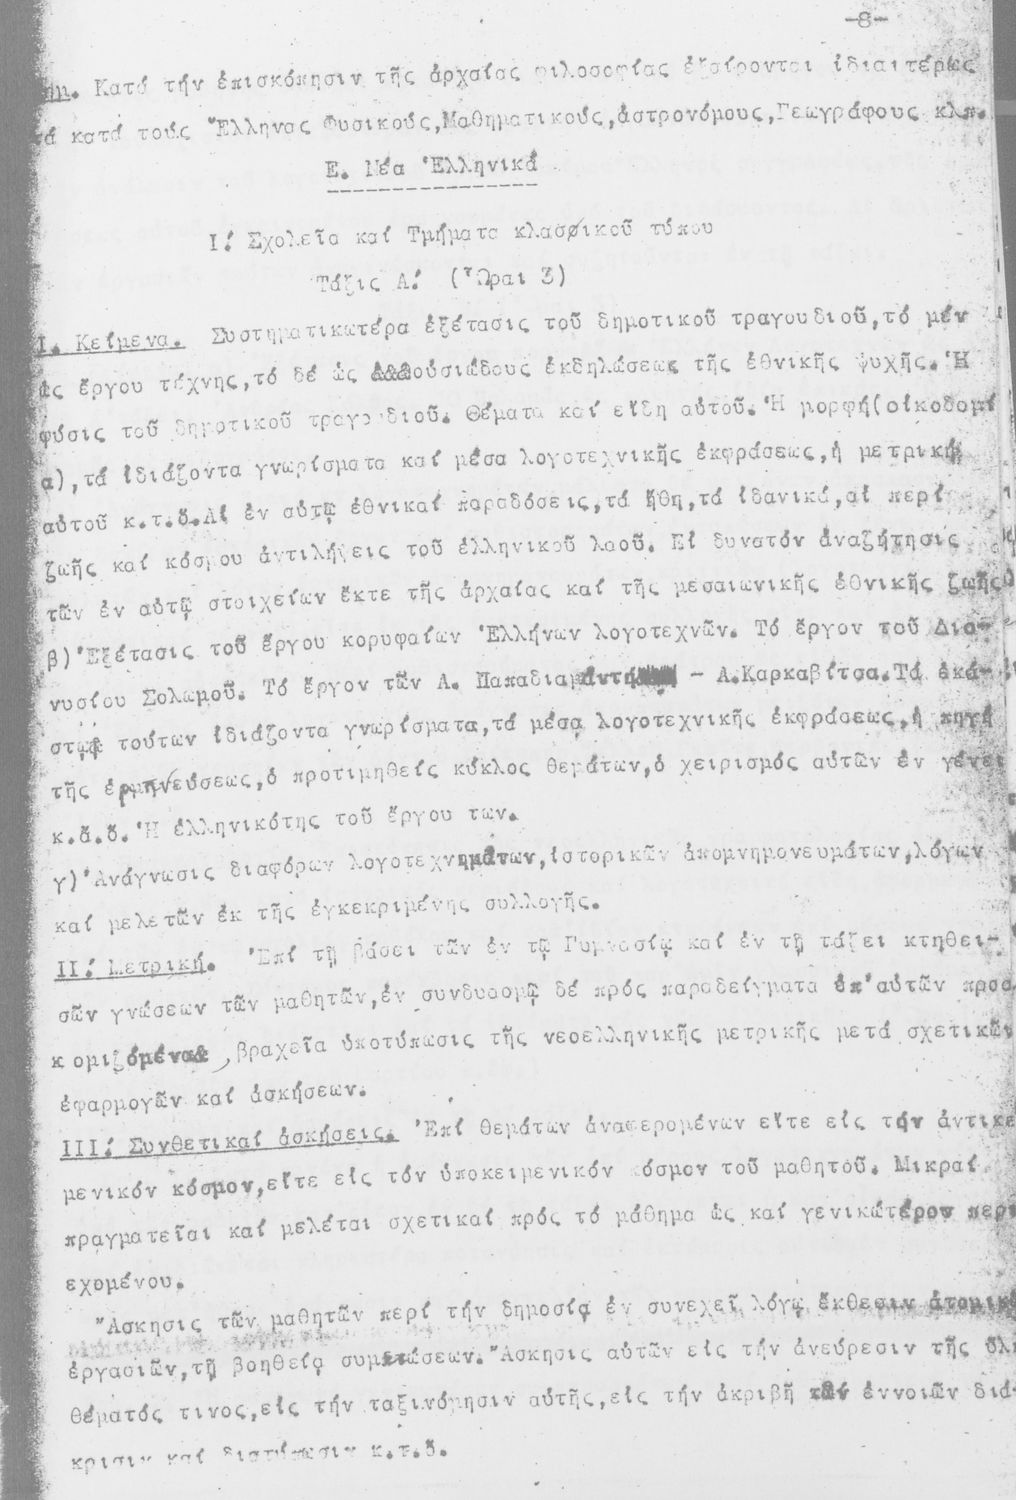 -8-
ημ. Κατά τήν ἐπισκόπησιν τῆς ἀρχαίας φιλοσοφίας ἐξαίρονται ἰδιαιτέρως
τά κατά τούς Ἕλληνας Φυσικούς,Μαθηματικούς,ἀστρονόμους,Γεωγράφους κλπ.
Ε. Νέα Ἑλληνικά
Ι! Σχολεῖα καί Τμήματα κλασσικοῦ τύπου
Τάξις Α! (Ὧραι 3)
Ι. Κείμενα. Συστηματικωτέρα ἐξέτασις τοῦ δημοτικοῦ τραγουδιοῦ,τό μέν
ὡς ἔργου τέχνης,τό δέ ὡς οὐσιώδους ἐκδηλώσεως τῆς ἐθνικῆς ψυχῆς. Ἡ
φύσις τοῦ δημοτικοῦ τραγουδιοῦ. Θέματα καί εἴδη αὐτοῦ. Ἡ μορφή(οἰκοδομί
α),τά ἰδιάζοντα γνωρίσματα καί μέσα λογοτεχνικῆς ἐκφράσεως,ἡ μετρική
αὐτοῦ κ.τ.ὅ.Αἱ ἐν αὐτῷ ἐθνικαί παραδόσεις,τά ἤθη,τά ἰδανικά,αἱ περί
ζωῆς καί κόσμου ἀντιλήψεις τοῦ ἑλληνικοῦ λαοῦ. Εἰ δυνατόν ἀναζήτησις
τῶν ἐν αὐτῷ στοιχείων ἔκτε τῆς ἀρχαίας καί τῆς μεσαιωνικῆς ἐθνικῆς ζωῆς
β)Ἐξέτασις τοῦ ἔργου κορυφαίων Ἑλλήνων λογοτεχνῶν. Τό ἔργον τοῦ Διο-
νυσίου Σολωμοῦ. Τό ἔργον τῶν Α. Παπαδιαμάντη - Α.Καρκαβίτσα.Τά ἑκά-
στῳ τούτων ἰδιάζοντα γνωρίσματα,τά μέσα λογοτεχνικῆς ἐκφράσεως,ἡ πηγή
τῆς ἑρμηνεύσεως,ὁ προτιμηθείς κύκλος θεμάτων,ὁ χειρισμός αὐτῶν ἐν γένει
κ.ἄ.ὅ. Ἡ ἑλληνικότης τοῦ ἔργου των.
γ)Ἀνάγνωσις διαφόρων λογοτεχνημάτων,ἱστορικῶν ἀπομνημονευμάτων,λόγων
καί μελετῶν ἐκ τῆς ἐγκεκριμένης συλλογῆς.
ΙΙ! Μετρική. Ἐπί τῇ βάσει τῶν ἐν τῷ Γυμνασίῳ καί ἐν τῇ τάξει κτηθει-
σῶν γνώσεων τῶν μαθητῶν,ἐν συνδυασμῷ δέ πρός παραδείγματα ὑπ'αὐτῶν προσ
κομιζόμενα, βραχεῖα ὑποτύπωσις τῆς νεοελληνικῆς μετρικῆς μετά σχετικῶν
ἐφαρμογῶν καί ἀσκήσεων.
ΙΙΙ! Συνθετικαί ἀσκήσεις. Ἐπί θεμάτων ἀναφερομένων εἴτε εἰς τόν ἀντικε
μενικόν κόσμον,εἴτε εἰς τόν ὑποκειμενικόν κόσμον τοῦ μαθητοῦ. Μικραί
πραγματεῖαι καί μελέται σχετικαί πρός τό μάθημα ὡς καί γενικώτερον περι
εχομένου.
Ἄσκησις τῶν μαθητῶν περί τήν δημοσίᾳ ἐν συνεχεῖ λόγῳ ἔκθεσιν ἀτομικῶ
ἐργασιῶν,τῇ βοηθείᾳ σημειώσεων. Ἄσκησις αὐτῶν εἰς τήν ἀνεύρεσιν τῆς ὕλη
θέματός τινος,εἰς τήν ταξινόμησιν αὐτῆς,εἰς τήν ἀκριβῆ τῶν ἐννοιῶν διά-
κρισιν καί διατύπωσιν κ.τ.ὅ.